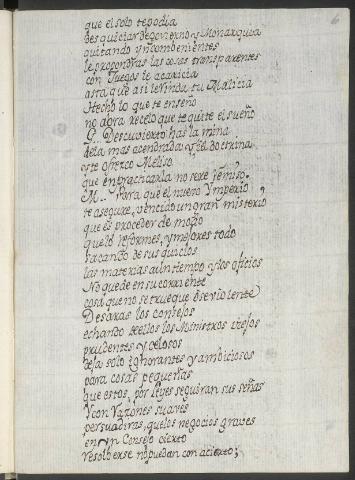 6
que el solo te podia
desquiciar de govierno y Monarquia
quitando yncombenientes
le propondras las cosas transparentes
con Juegos le acaricia
asta que asi le rinda tu Malicia
Hecho lo que te enseño
no abra recelo que te quite el sueño
G... Descuvierto has la mina
de la mas acendrada doctrina
y te ofrezco Meliso
que en practicarla no sere remiso.
M... Para que el nuevo Ymperio
te asegure, vencido un gran misterio
que es proceder de modo
que lo reformes, y mejores todo
sacando de sus quicios
las materias a un tiempo y los oficios
No quede en su corriente
cosa que no se trueque o se violente
Desaras los consejos
echando de ellos los Ministros viejos
prudentes y celosos
deja solo ignorantes y ambiciosos
para cosas pequeñas
que estos, por Leyes seguiran sus señas
Y con Razones suaves
persuadiras, que los negocios graves
en un Consejo cierto
resolverse no puedan con acierto;